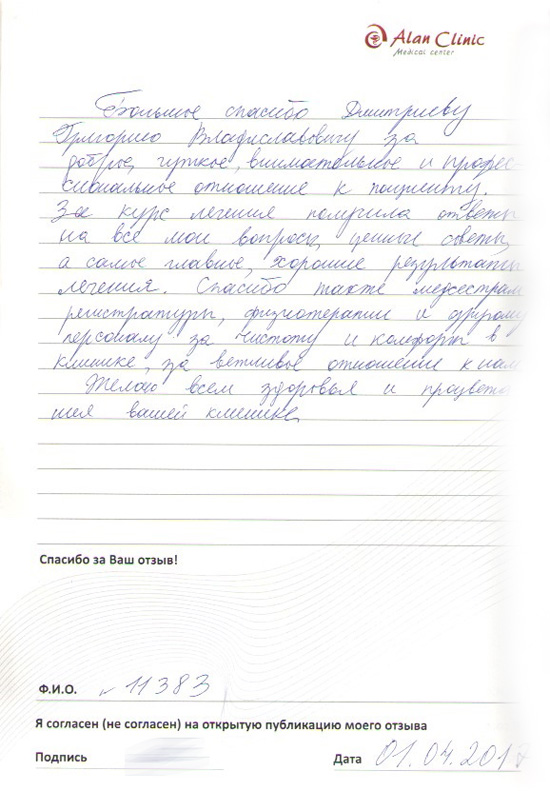 Alan Clinic
Medical center
Большое спасибо Дмитриеву
Григорию Владиславовичу за
доброе, чуткое, внимательное и профес-
сиональное отношение к пациенту.
За курс лечения получила ответы
на все мои вопросы, ценные советы,
а самое главное, хорошие результаты
лечения. Спасибо также медсестрам
регистратуры, физиотерапии и другому
персоналу за чистоту и комфорт в
клинике, за вежливое отношение к нам
Желаю всем здоровья и процвета
ния вашей клинике
Спасибо за Ваш отзыв!
Ф.И.О. 11383
Я согласен (не согласен) на открытую публикацию моего отзыва
Подпись
Дата 01.04.201